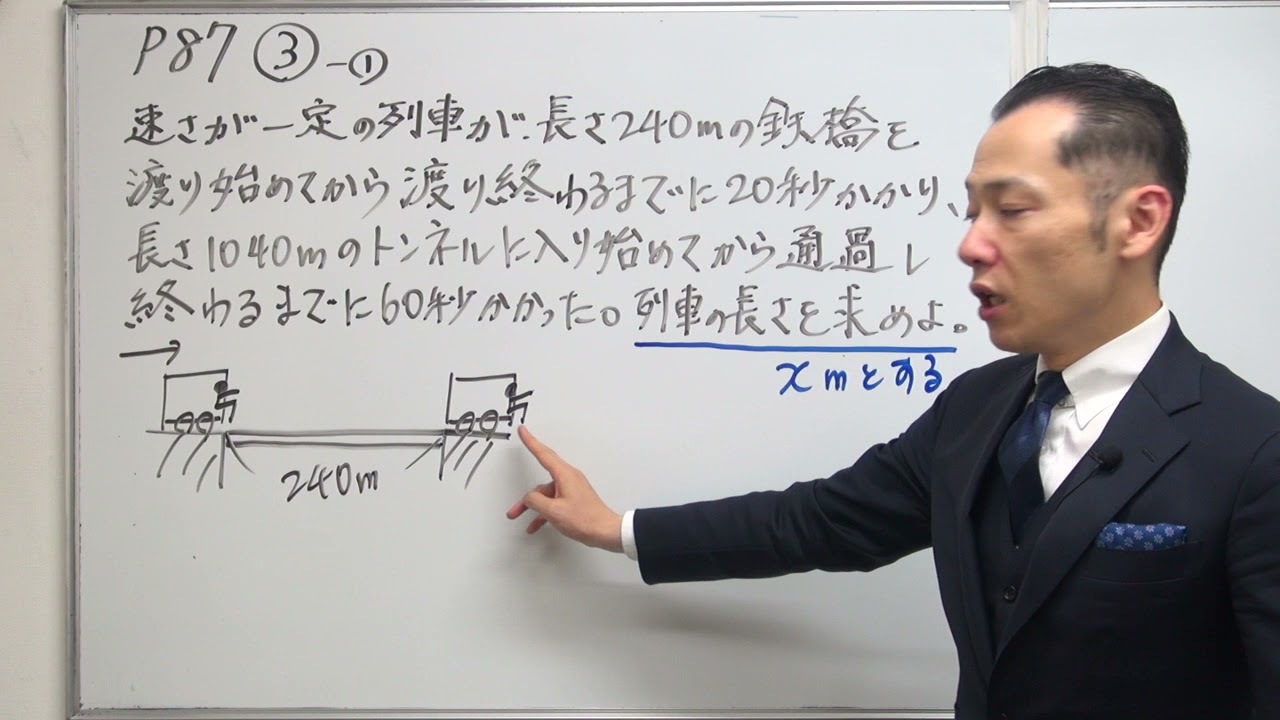 P87 ③-①
速さが一定の列車が、長さ240mの鉄橋を
渡り始めてから渡り終わるまでに20秒かかり、
長さ1040mのトンネルに入り始めてから通過し
終わるまでに60秒かかった。列車の長さを求めよ。
xmとする
240m